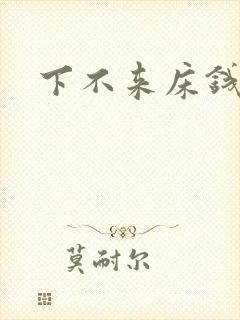 下不来床钱
莫耐尔